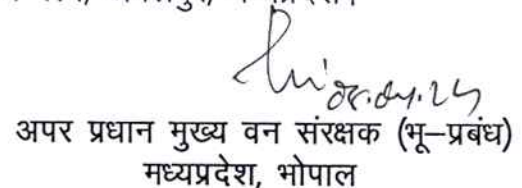 08.04.25
अपर प्रधान मुख्य वन संरक्षक (भू–प्रबंध)
मध्यप्रदेश, भोपाल